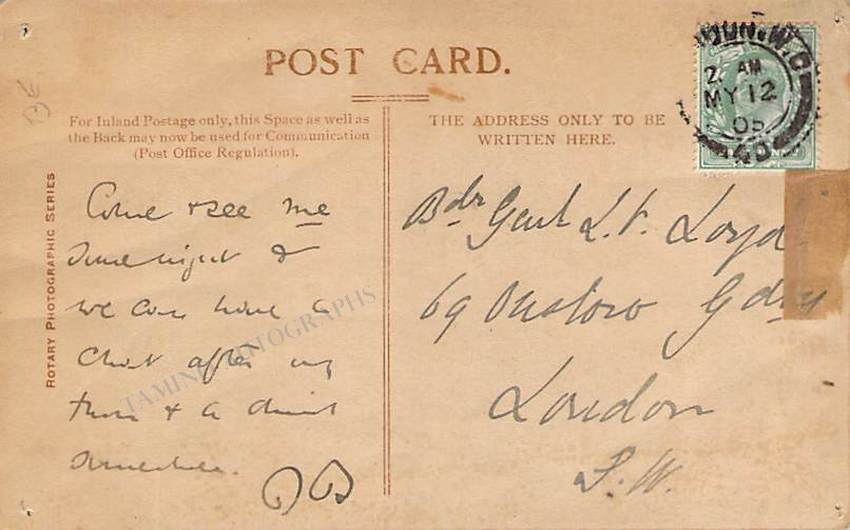 POST CARD.
For Inland Postage only, this Space as well as
the Back may now be used for Communication
(Post Office Regulation).
THE ADDRESS ONLY TO BE
WRITTEN HERE.
ROTARY PHOTOGRAPHIC SERIES
Come & see me
some night &
we can have a
chat after my
turn & a drink
somewhere.
Bdr Genl L.V. Loyd
69 Onslow Gdns
London
S.W.
W.C
2 AM
MY 12
05
TAMINO AUTOGRAPHS